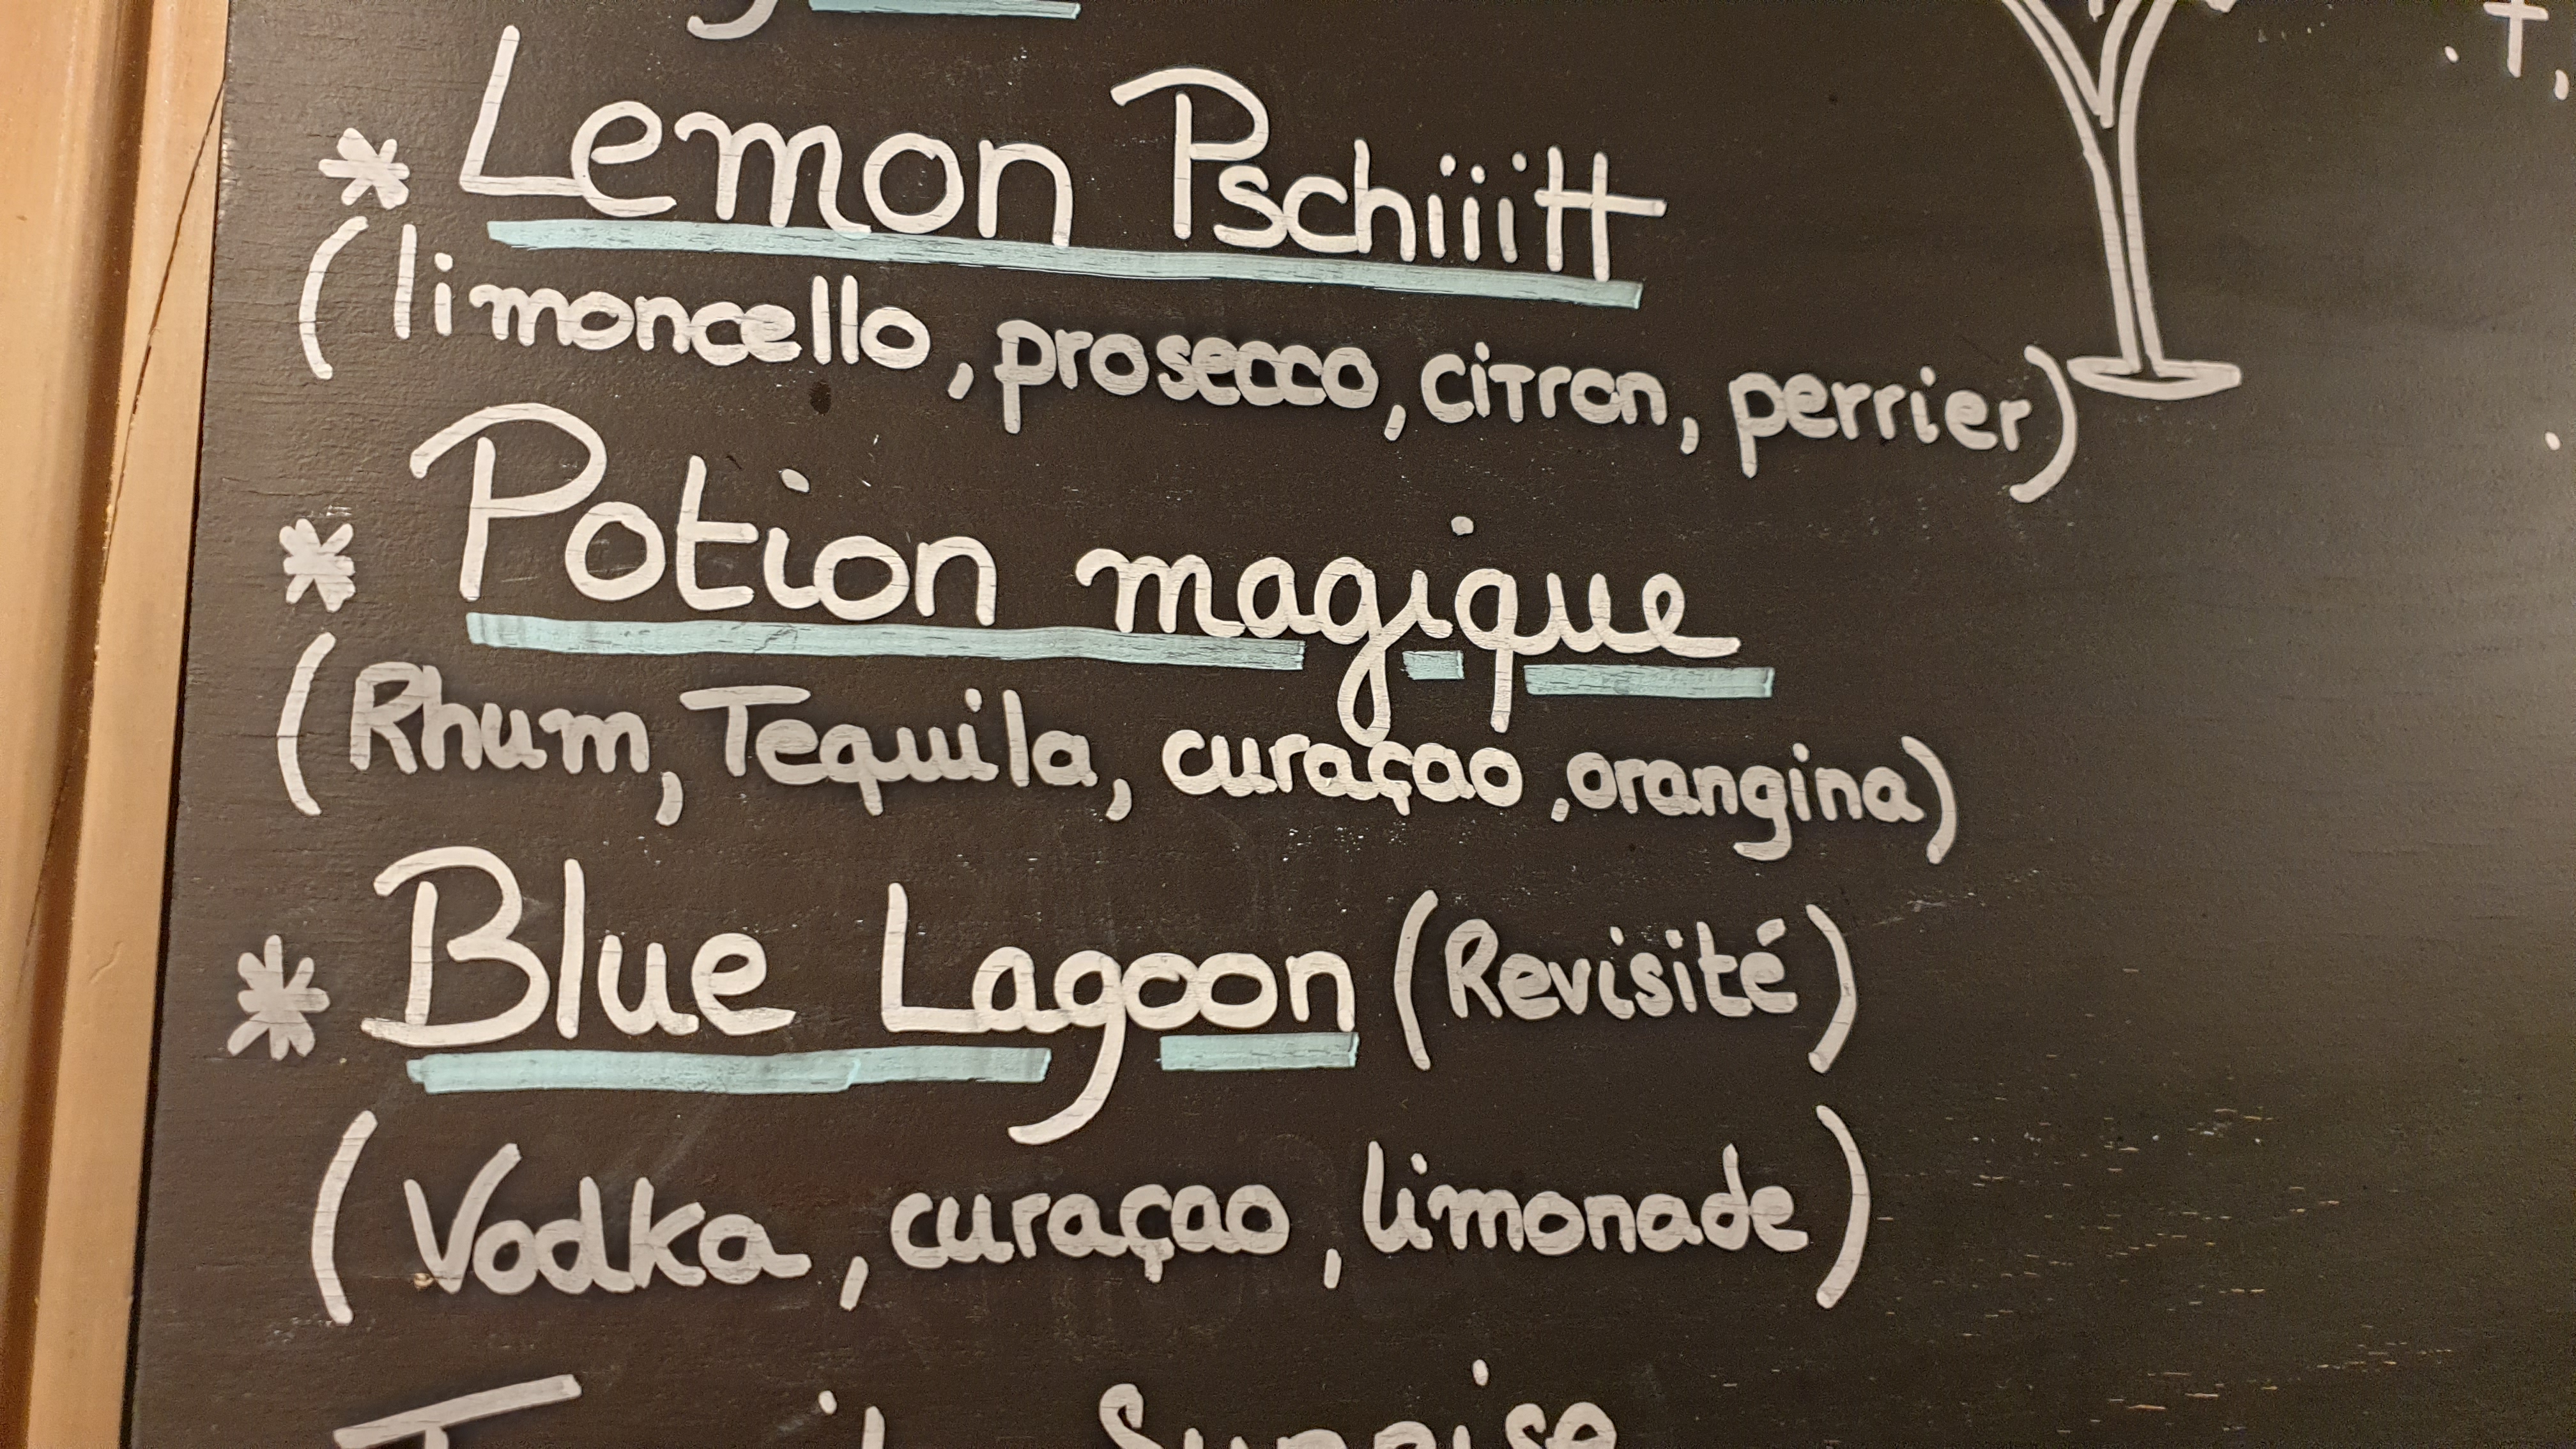 * Lemon Pschiiitt
(limoncello, prosecco, citron, perrier)
* Potion magique
(Rhum, Tequila, curaçao, orangina)
* Blue Lagoon (Revisité)
(Vodka, curaçao, limonade)
Sunrise